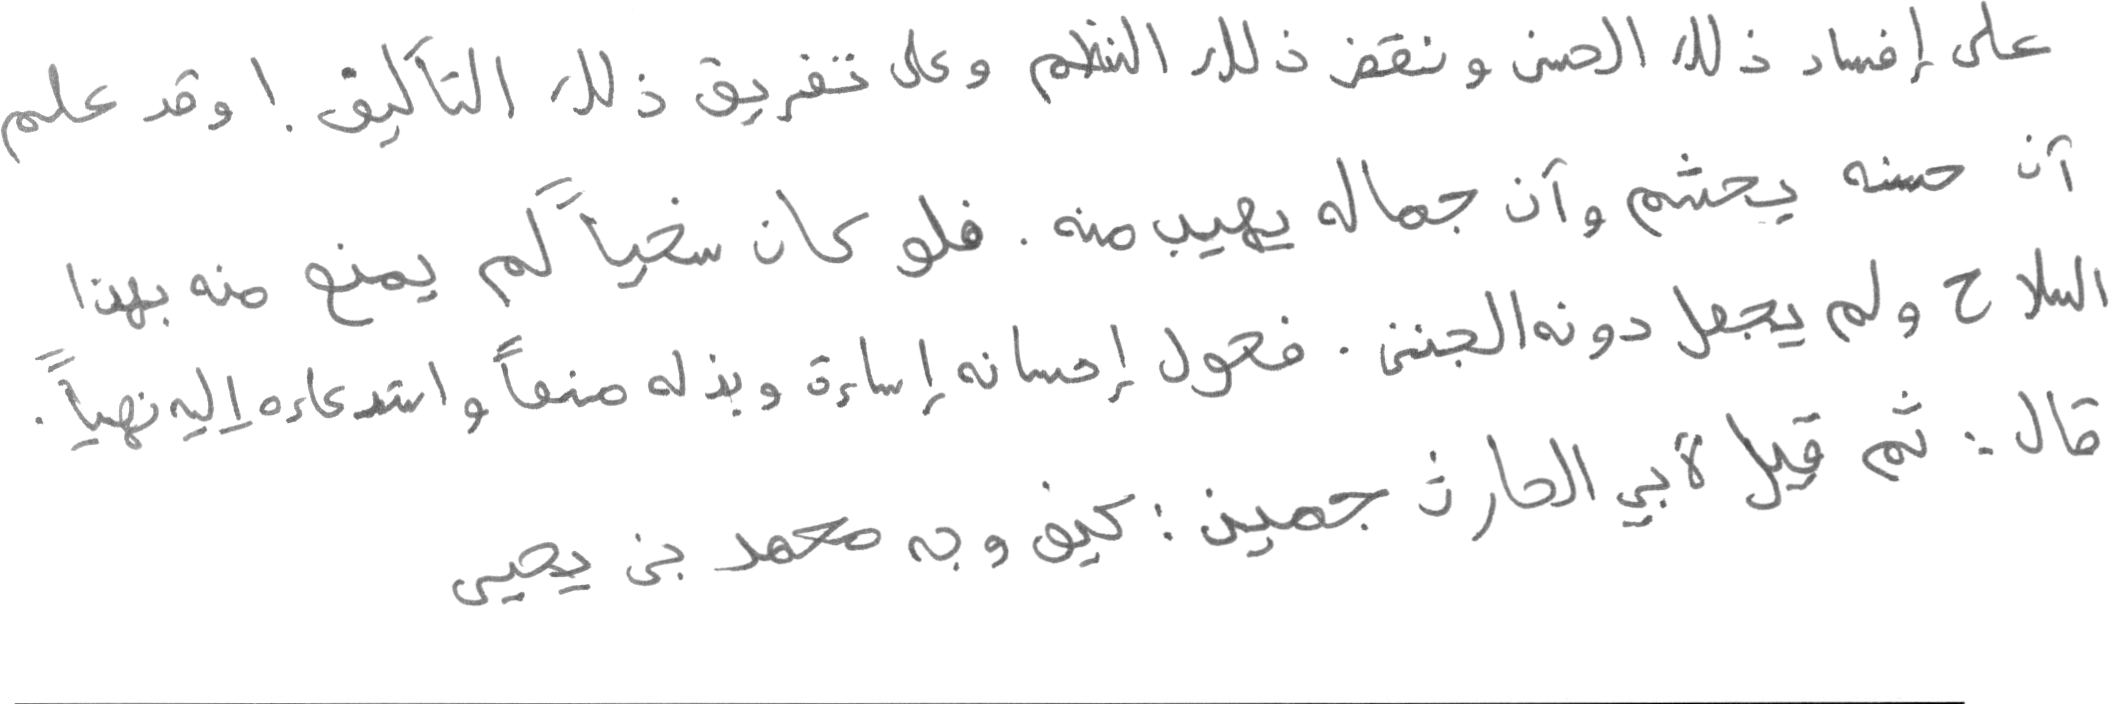 على إفساد ذلك الحسن ونقض ذلك النظم وعلى تفريق ذلك التأليف. ! وقد علم
أن حسنه يحشم وأن جماله يهيب منه. فلو كان سخياً لم يمنع منه بهذا
السلاح ولم يجعل دونه الجنن. فحول إحسانه إساءة وبذله منعاً واستدعاءه إليه نهياً.
قال: ثم قيل لأبي الحارث جمين: كيف وجه محمد بن يحيى